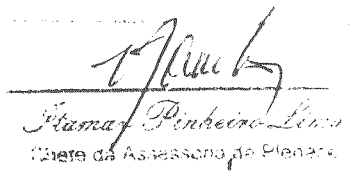 Itamar Pinheiro Lima
Chefe da Assessoria de Plenário